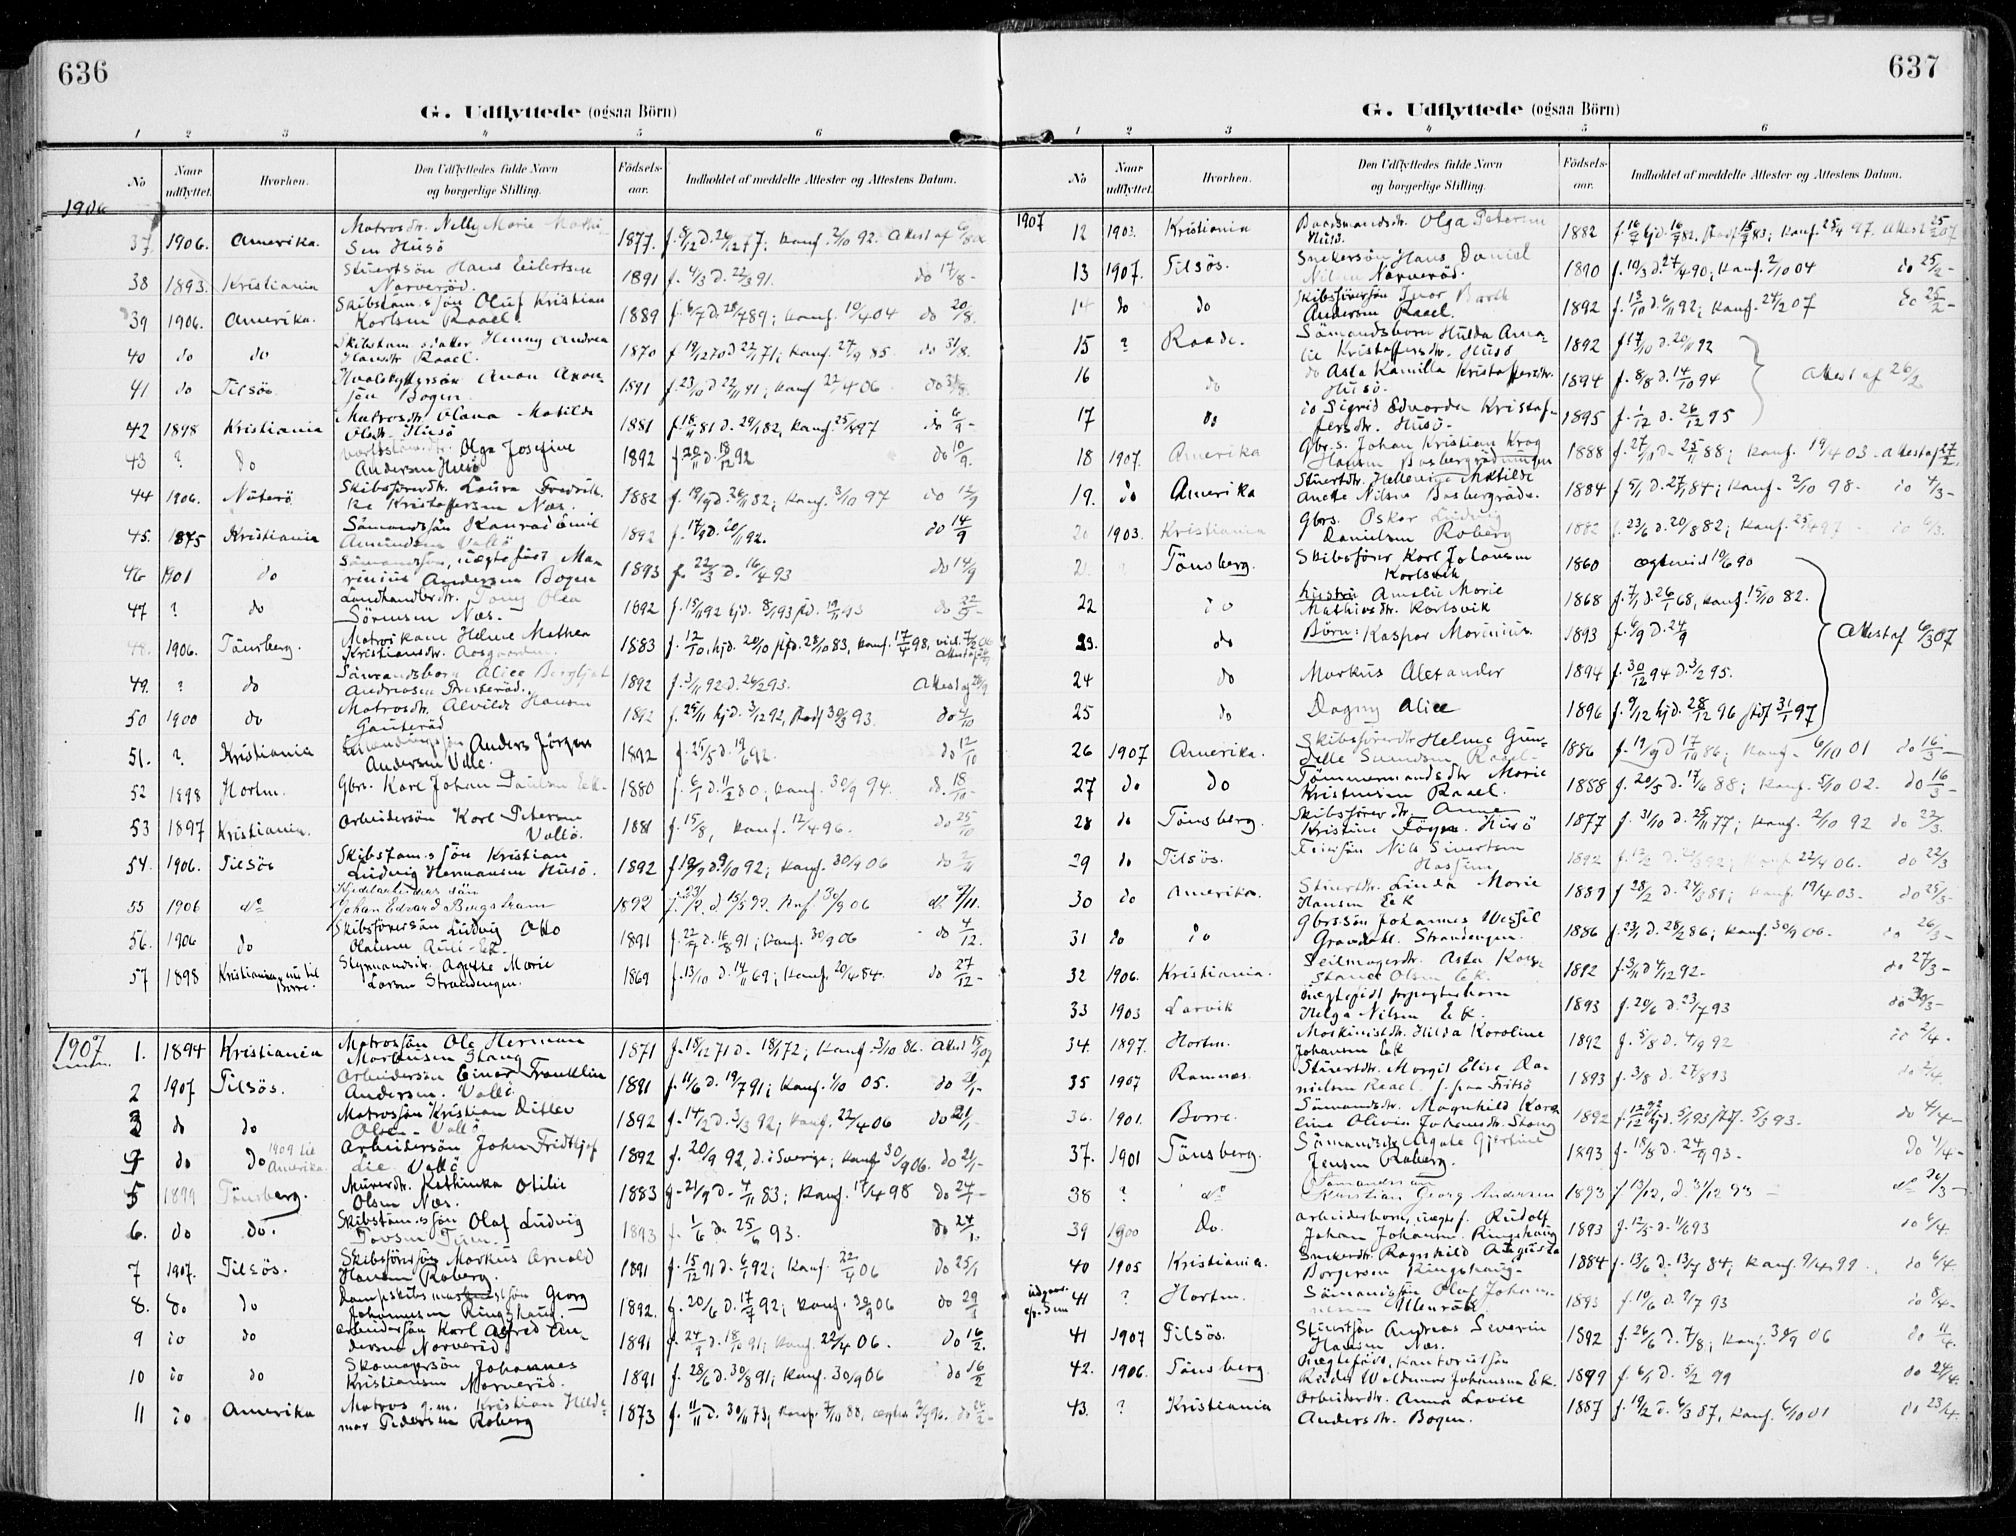 636
G. Udflyttede (ogsaa Börn)
1 2 3 4 5 6
No Naar udflyttet. Hvorhen. Den Udflyttedes fulde Navn og borgerlige Stilling. Födsels-aar. Indholdet af meddelte Attester og Attestens Datum.
1906
37. 1906. Amerika. Matrosdr. Nelly Marie Mathi-
sen Husö 1877. f. 5/12 d. 26/12 77; konf. 2/10 92. Attest af
38 1893. Kristiania Stuertsön Hans Eilertsen
Norveröd. 1891 f. 4/3 d. 22/3 91. do 17/8 -
39 1906. Amerika. Skibstöm.s sön Oluf Kristian
Karlsen Raael. 1889 f. 6/7 d. 28/7 89; konf. 10/4 04 do 20/8.
40 do do Skibstöm.s datter Henny Andrea
Hansdr Raael. 1870 f. 19/12 70 d 22/1 71; konf. 27/9 85 do 31/8.
41 do Tilsös. Hvalskyttersön Anon Anon-
sen Bogen 1891 f. 23/10 d 22/11 91; konf 22/4 06 do 31/8.
42 1898 Kristiania Matrosdr. Olana Matilde
Olsdr. Husö 1881 f. 18/11 81 d. 29/1 82, konf. 25/4 97 do 6/9 -
43 ? do Olga Josefine
Andersen Husö 1892 f. 20/11 d. 18/12 92 do 10/9.
44 1906. Nöterö Skibsförerdr. Laura Fredrik-
ke Kristoffersen Næs. 1882 f. 19/9 d. 26/11 82; konf. 3/10 97 do 12/9
45. 1895 Kristiania Sömandssön Konrad Emil
Amundsen Vallö 1892 f. 17/9 d. 20/11 92. do 14/9
46 1901 do Sömandssön, uægte föst Ma-
rinius Andersen Bogen 1893 f. 22/3 d. 16/4 93 do 14/9
47 ? do Landhandlerdr. Olea
Sörensen Næs. 1892 f. 15/11 92 hjd. 8/1 93 do 22/9 -
48. 1906. Tönsberg. Matroskone Helene Mathea
Kristiansdr. Aasgaarden. 1883 f. 12/10, hjd. 20/10 stfd. 28/10 83, konf. 17/4 98,
49. ? do Sömandsborn Alice Bergljot
Andreasen Presteröd. 1892 f. 3/11 92 d. 26/2 93. Attest af
50 1900 do Matrosdr. Alvilde Hansen
Gauteröd 1892 f. 29/11 hjd. 3/12 92, stadf 30/3 93. do 1/10
51. ? Kristiania Anders Jörgen
Andersen Valle. 1892 f. 25/5 d. 19/6 92. do 12/10
52 1898 Horten. Gbrs. Karl Johan Paulsen Eek. 1880 f. 6/1 d. 11/2 80; konf. 30/9 94. do 18/10 -
53 1897 Kristiania. Arbeidersön Karl Petersen
Vallö 1881 f. 15/8, konf. 12/4 96. do 25/10
54. 1906. Tilsös Skibstöm.s sön Kristian
Ludvig Hermansen Husö. 1892 f 19/9 d 9/10 92; konf. 30/9 06 do 2/11
55 1906 do Kjedelarbeiders sön
Johan Edvard Bergstrøm 1892 d 15/5 92. Konf 30/9 06 do 9/11.
56. 1906 do Skibsförersön Ludvig Otto
Olausen Auli-Ek. 1891 f. 22/7 d. 16/8 91; konf. 30/9 06 do 4/12.
57 1898 Kristiania, nu til
Borre. Styrmandsdr. Agathe Marie
Larsen Strandengen. 1869 f. 13/10 d. 14/11 69; konf. 20/4 84. do 27/12 -
1907
1. 1894 Kristiania Matrossön Ole Herman
Martinsen Stang 1871 f. 18/12 71 d. 18/1 72; konf. 3/10 86. Attest 15/1 07
2 1907 Tilsös. Arbeidersön Einar Franklin
Andersen. Vallö 1891 f. 11/6 d. 19/7 91; konf. 1/10 05. do 21/1 -
3 do do Matrossön Kristian Ditlev
Olsen - Vallö 1892 f. 14/2 d. 3/3 92; konf. 22/4 06 do 21/1 -
4 do do 1909 til
Amerika. Arbeidersön John Fridthjof
Lie Vallö 1892 f. 20/9 92, d. i Sverige; konf 30/9 06. do 21/1 -
5 1899 Tönsberg. Murerdr. Kathinka Otilie
Olsen Næs. 1883 f. 21/9 d. 4/11 83; konf. 17/4 98 do 24/1 -
6. do do. Skibstöm.s sön Olaf Ludvig
1893 f. 1/6 d. 25/6 93. do 24/1.
7 1907. Tilsös. Skibsförersön Markus Arnold
Hansen Roberg. 1891 f. 15/12 91 d. 6/1 92; konf. 22/4 06 do 25/1
8. do do Dampskibsmaskinistsön Georg
Johannesen Ringshaug. 1892. f. 20/6 d. 17/7 92; konf. 30/9 06 do 29/1
9 do do Arbeidersön Karl Alfred An-
dersen Norveröd 1891 f. 24/9 d. 18/10 91; konf. 22/4 06. do 16/2.
10 do do Skomagersön Johannes
Kristiansen Norveröd. 1891 f. 28/6 d. 30/8 91; konf. 30/9 06 do 16/2
11 do Amerika Matros g.m. Kristian Hilde-
mar Pedersen Roberg 1873 f. 11/11 d. 30/11 73;
637
G. Udflyttede (ogsaa Börn)
1 2 3 4 5 6
No Naar udflyttet. Hvorhen. Den Udflyttedes fulde Navn og borgerlige Stilling. Födsels-aar. Indholdet af meddelte Attester og Attestens Datum.
1907
12 1903. Kristiania Baadsmandsdr. Olga Petersen
Husö. 1882 konf. 25/4 97. Attest 25/2 07
13 1907. Tilsös. Snekersön Hans Daniel
Nilsen Norveröd. 1890 f. 10/3 d. 27/4 90; konf. 2/10 04 do 25/2 -
14 do do Skibsförersön Ivar Barth
Andersen Raael. 1892 f. 13/10 d. 6/11 92; konf. 24/2 07 do 25/2 -
15 ? Raade. Sömandsbarn Hulda Ama-
lie Kristoffersdr. Husö 1892 f 17/10 d. 20/11 92
16 do do Asta Kamilla Kristoffersdr.
Husö. 1894 f. 8/8 d. 14/10 94 Attest af 26/2
17 do do Sigrid Edvarda Kristof-
fersdr. Husö - 1895 f. 1/12 d. 26/12 95
18 1907. Amerika Gbr.s. Johan Kristian Krog
Hansen Basbergrödningen 1888 f. 27/11 d. 25/1 88; konf. 19/4 03 - Attest af 27/2.
19. do Amerika Stuertdr. Hellevine Matilde
Anette Nilsen Basbergröds. 1884 f 5/1 d. 27/1 84; konf. 2/10 98. do 4/3 -
20 1903. Kristiania Gbrs. Oskar Ludvig
Danielsen Roberg 1882 f. 23/6 d. 20/8 82; konf. 25/4 97 - do 6/3.
21. Tönsberg. Skibsförer Karl Johansen
Karlsvik 1860 ægteviet 19/6 90
22 do hustru Amalie Marie
Mathisdr. Karlsvik 1868 f. 7/1 d. 26/1 68, konf. 15/10 82.
23. do Börn: Kaspar Marinius. 1893 f. 6/9 d. 24/9 Attest af 6/3 07
24 do Markus Alexander 1894 f. 30/12 94 d. 3/2 95.
25 do Dagny Alice 1896 f. 9/12 hjd. 28/12 96 stdf 31/1 97
26 1907 Amerika. Skibsförerdr. Helene Gun-
Raael - 1886 f. 19/9 d 17/10 86; konf. - 6/10 01 do 16/3 -
27 do do Tömmermandsdr Marie
Kristensen Raael. 1888 f. 20/5 d. 17/6 88; konf. 5/10 02. do 16/3 -
28 do Tönsberg. Skibsförerdr. Anne
Kristine Föyen. Husö 1877 f. 31/10 d. 25/11 77; konf. 2/10 92 do 22/3.
29 do Tilsös. Nils Sivertsen
1892 konf 22/4 06. do 22/3
30 do Amerika. Stuertdr. Linda Marie
Hansen Eek 1887 konf. 19/4 03. do 25/3 -
31 do do Gbrssön Johannes Wessel
Gravdahl. Strandengen. 1886 f. 23/1 d. 28/2 86; konf. 30/9 06. do 26/3 -
32 1906. Kristiania. Seilmagerdr. Asta Kon-
stance Olsen Eek. 1892 f. 3/11 d 4/12 92 - do 27/3 -
33 1903 Larvik Uægtefödt
Helga Nilsen Eek. 1893 f. 20/6 d. 23/7 93 do 30/3 -
34. 1897. Horten. Maskinistdr. Hilda Karoline
Johansen Eek 1892 f. 5/8 d. 4/9 92 do 2/4 -
35 1907 Ramnæs. Stuertdr. Margit Elise Da-
nielsen Raael f. paa Fritsö 1893 f. 3/8 d. 27/8 93 do 2/4.
36. 1901. Borre. Sömandsdr. Magnhild Karo-
line Olivia Johansdr. Stang 1892 hjd. 5/1 93 stdf. 5/3 93. do 4/4 -
37. 1901 Tönsberg. Sömandsdr Agate Gjertine
Jensen Roberg. 1893 f. 18/8 d. 24/9 93 - do 4/4 -
38 ? do Sömandssön
Kristian Georg Andersen 1893 f. 13/12, d. 31/12 93 - do 26/3 -
39 1900 do. Arbeiderbarn, uægtef. Rudolf
Johan Johansen Ringshaug 1893 f. 12/5 d. 11/6 93 do 6/4.
40 1905 Kristiania. Snekerdr. Ragnhild Augusta
Borgersen Ringshaug - 1884 f. 13/6 d. 13/7 84; konf. 9/4 99. do 6/4.
udgaar.
cfr. Sem 41 ? Horten. Sömandssön Olaf Johan-
1893 f. 10/6 d. 9/7 93 do 8/4 -
41 1907 Tilsös. Stuertsön Andreas Severin
Hansen Næs. 1892 f. 26/6 d. 7/8; konf. 30/9 06 do 11/4.
42. 1906. Tönsberg Uægtefödt, kontoristsön
Reidar Waldemar Johansen Ek. 1899 f. 6/1 d. 5/2 99 do 24/4.
43. ? Kristiania Arbeiderdr. Anna Lovise
Andersdr. Bogen. 1887 f. 19/2 d. 6/3 87, konf. 6/10 01 do 23/4.